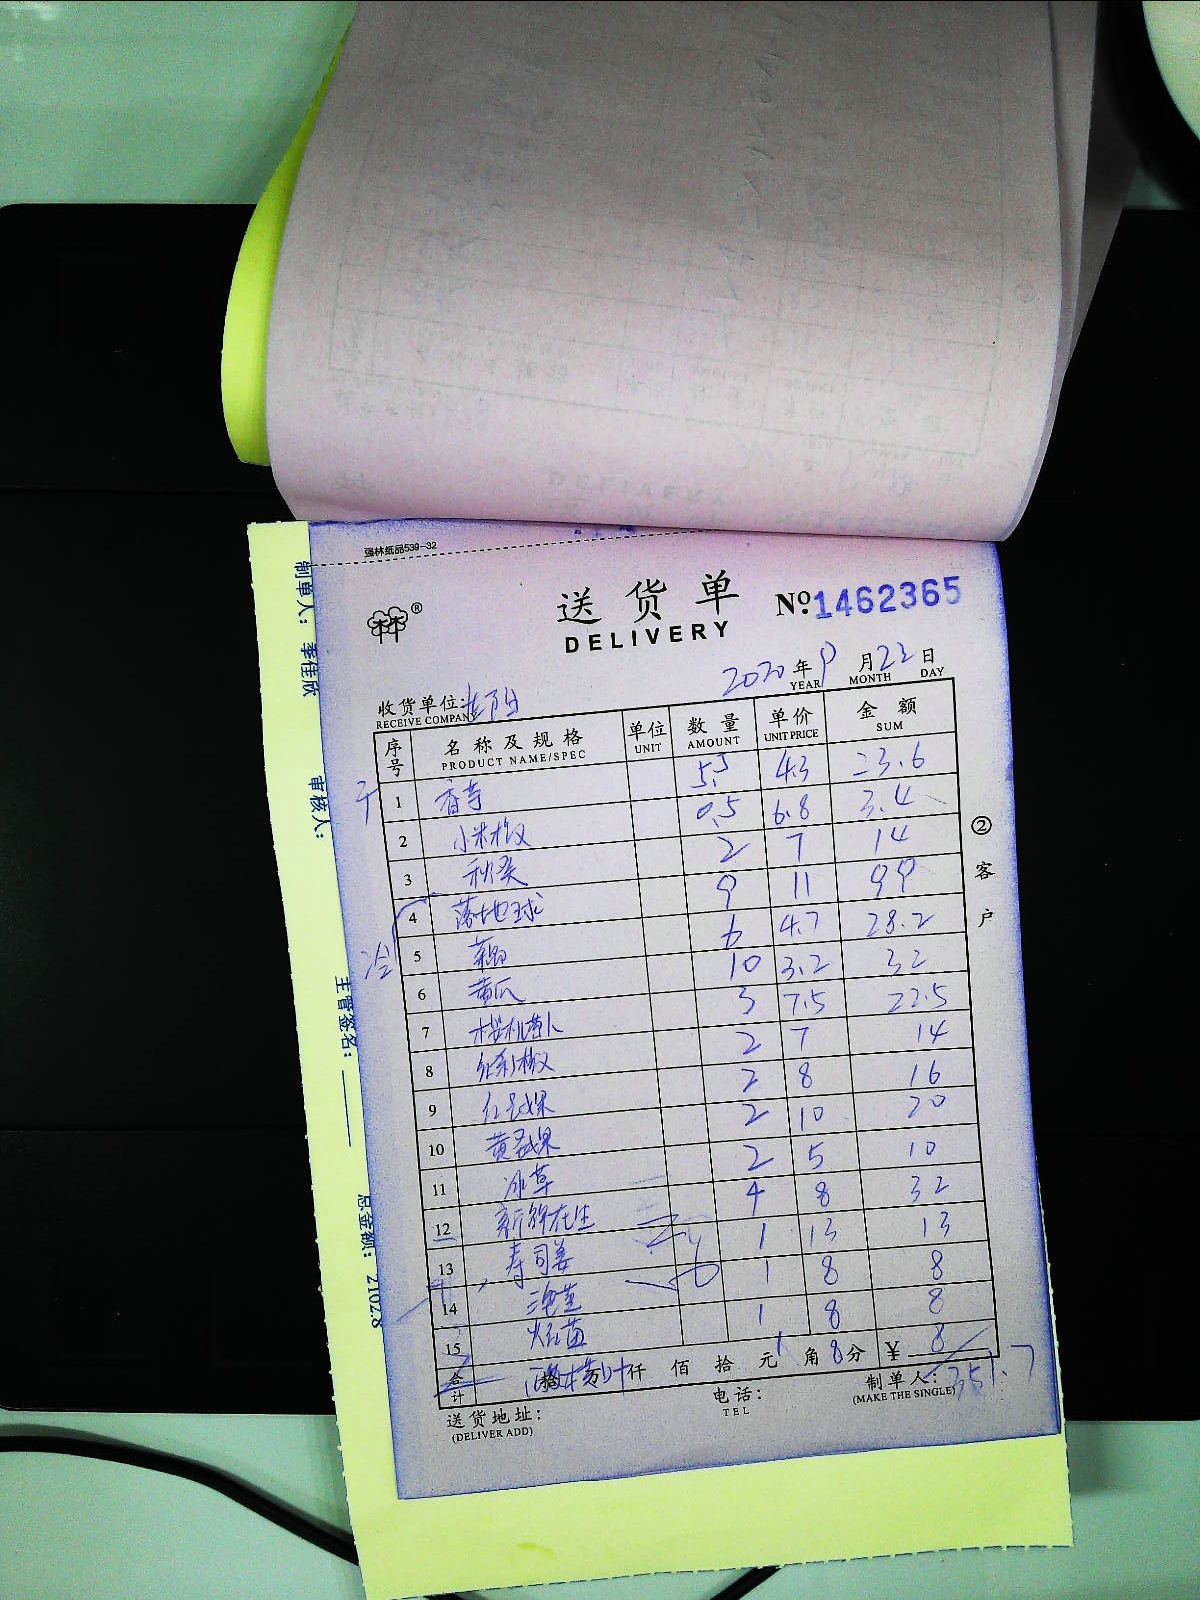 强林纸品539-32
林®
送货单 № 1462365
DELIVERY
2020 年 9 月 22 日
YEAR MONTH DAY
收货单位:
RECEIVE COMPANY
序号 名称及规格 单位 数量 单价 金额
PRODUCT NAME/SPEC UNIT AMOUNT UNIT PRICE SUM
1 香芋 5.5 4.3 23.6
2 小米椒 0.5 6.8 3.4
3 秋葵 2 7 14
4 落地球 9 11 99
5 6 4.7 28.2
6 黄瓜 10 3.2 32
7 3 7.5 22.5
8 2 7 14
9 2 8 16
10 2 10 20
11 冰草 2 5 10
12 新鲜花生 4 8 32
13 寿司姜 1 13 13
14 1 8 8
15 1 8 8
合计 仟 佰 拾 元 1 角 8 分 ¥ 8
351.7
送货地址: 电话: 制单人:
(DELIVER ADD) TEL (MAKE THE SINGLE)
②客户
制单人: 李佳欣
审核人:
主管签名:
总金额: 2102.8